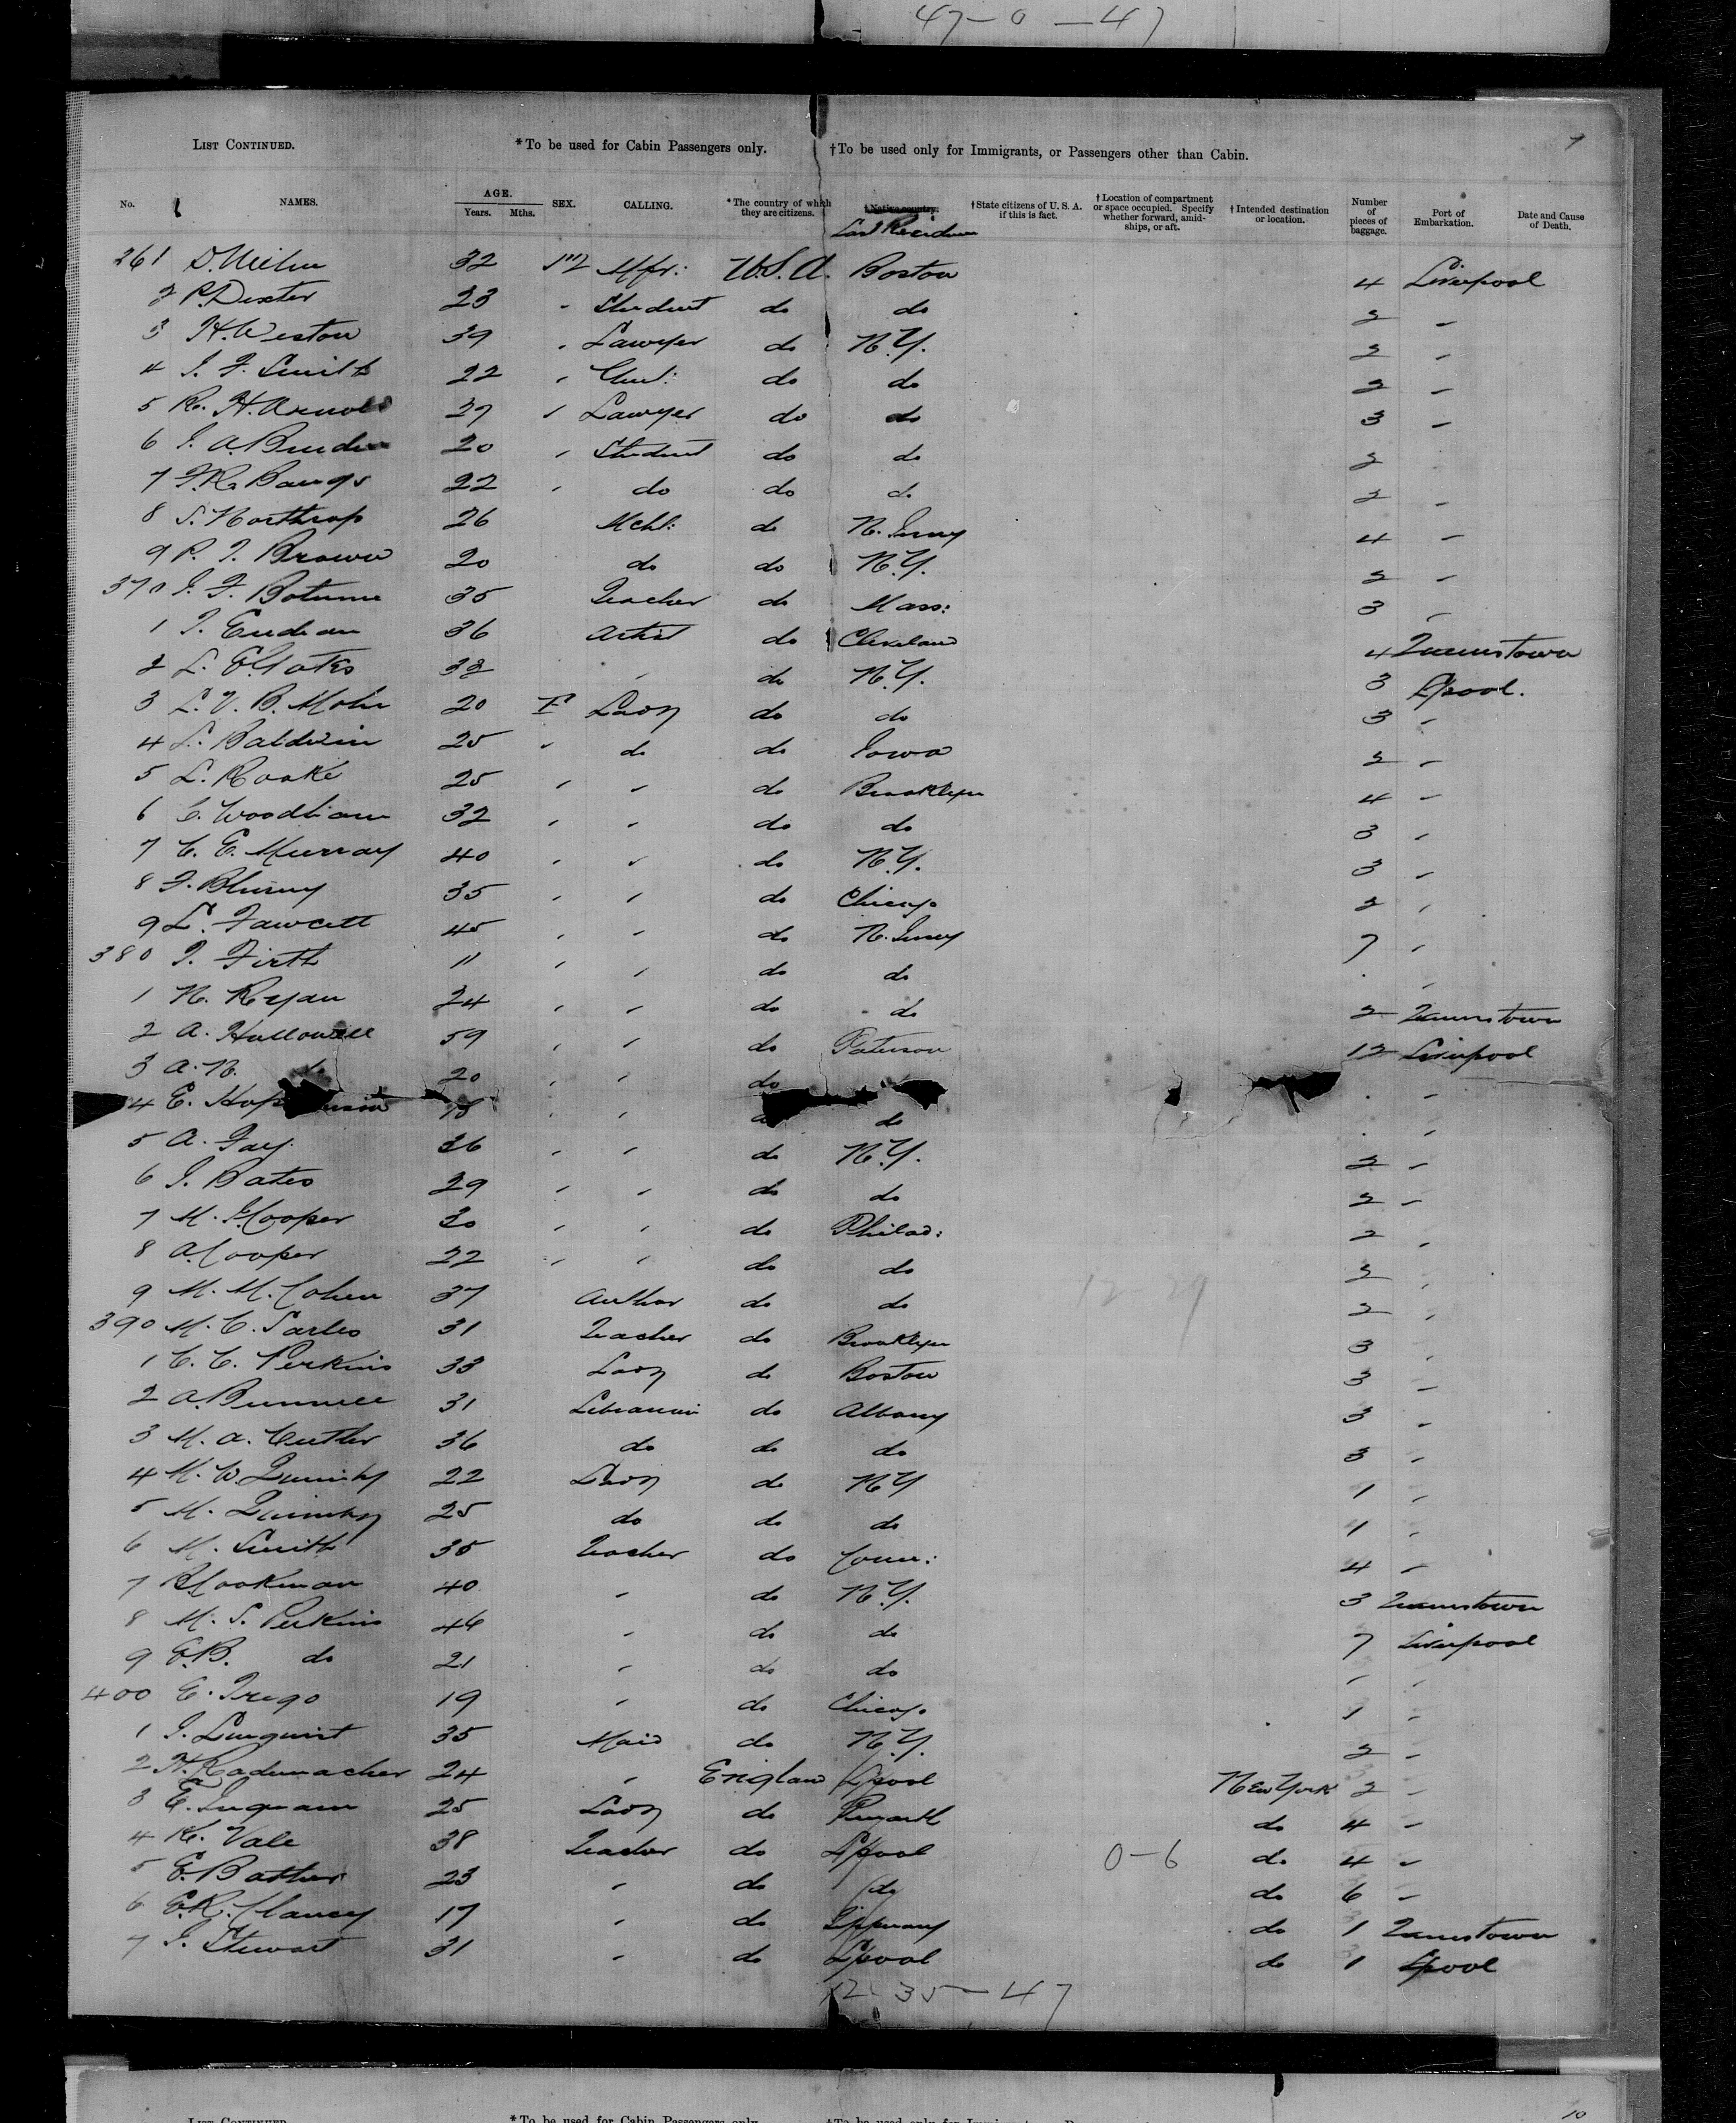 47-0-47
7
LIST CONTINUED. *To be used for Cabin Passengers only. †To be used only for Immigrants, or Passengers other than Cabin.
No. NAMES. AGE. Years. Mths. SEX. CALLING. *The country of which they are citizens. †Native country. Last Residence †State citizens of U. S. A. if this is fact. †Location of compartment or space occupied. Specify whether forward, amid-ships, or aft. †Intended destination or location. Number of pieces of baggage. Port of Embarkation. Date and Cause of Death.
261 D. 32 M Mfr: U.S.A. Boston 4 Liverpool
2 P. Dexter 23 " Student do do 2 "
3 H. Weston 39 " Lawyer do N.Y. 2 "
4 J. F. Smith 22 " do do 2 "
5 R. H. Arnold 27 " Lawyer do do 3 "
6 J. A. 20 " Student do do 2
7 F. R. Bangs 22 " do do do 2 "
8 S. Northrop 26 Mcht: do N. Jersey 4 "
9 P. J. Brown 20 do do N.Y. 2 "
370 J. F. Botume 35 Teacher do Mass: 3 "
1 J. 36 Artist do Cleveland 4 Queenstown
2 L. E. Yates 32 " do N.Y. 3 L'pool.
3 L. V. B. Mohr 20 F Lady do do 3 "
4 L. Baldwin 25 " do do Iowa 2 "
5 L. Rooke 25 " " do Brooklyn 4 "
6 C. Woodham 32 " " do do 3 "
7 C. E. Murray 40 " " do N.Y. 3 "
8 F. 35 " " do Chicago 2 "
9 L. Fawcett 45 " " do N. Jersey 7 "
380 J. Firth 11 " " do do . "
1 N. Ryan 24 " " do do 2 Queenstown
2 A. Hallowell 59 " " do Paterson 12 Liverpool
3 A. N. do 20 " " do . "
4 E. " " do . "
5 A. Fay. 26 " " do N.Y. 2 "
6 J. Bates 29 " " do do 2 "
7 M. Hooper 30 " " do Philad: 2 "
8 A. Cooper 22 " " do do 2 "
9 M. M. Cohen 37 Author do do 2 "
12-29
390 M. C. Sarles 31 Teacher do Brooklyn 3 "
1 C. C. Perkins 33 Lady do Boston 3 "
2 A. Bunnell 31 Librarian do Albany 3 "
3 M. A. Cutler 36 do do do 3 "
4 M. W. Quimby 22 Lady do NY 1 "
5 M. Quimby 25 do do do 1 "
6 M. Smith 35 Teacher do Conn: 4 "
7 Hookman 40 " do N.Y. 3 Queenstown
8 M. S. Perkins 46 " do do 7 Liverpool
9 E. B. do 21 " do do " "
400 E. Trego 19 " do Chicago 1 "
1 J. Lunquist 35 Maid do N.Y. 2 "
2 H. Rademacher 24 " England L'pool New York 2 "
3 E. Ingram 25 Lady do Penarth do 4 "
4 K. Vale 38 Teacher do L'pool 0-6 do 4 "
5 E. Bather 23 " do do do 6 "
6 E. R. Clancy 17 " do do 1 Queenstown
7 J. Stewart 31 " do L'pool do 1 L'pool
12 35-47
LIST CONTINUED. *To be used for Cabin Passengers only. †To be used only for Immigrants, or 10